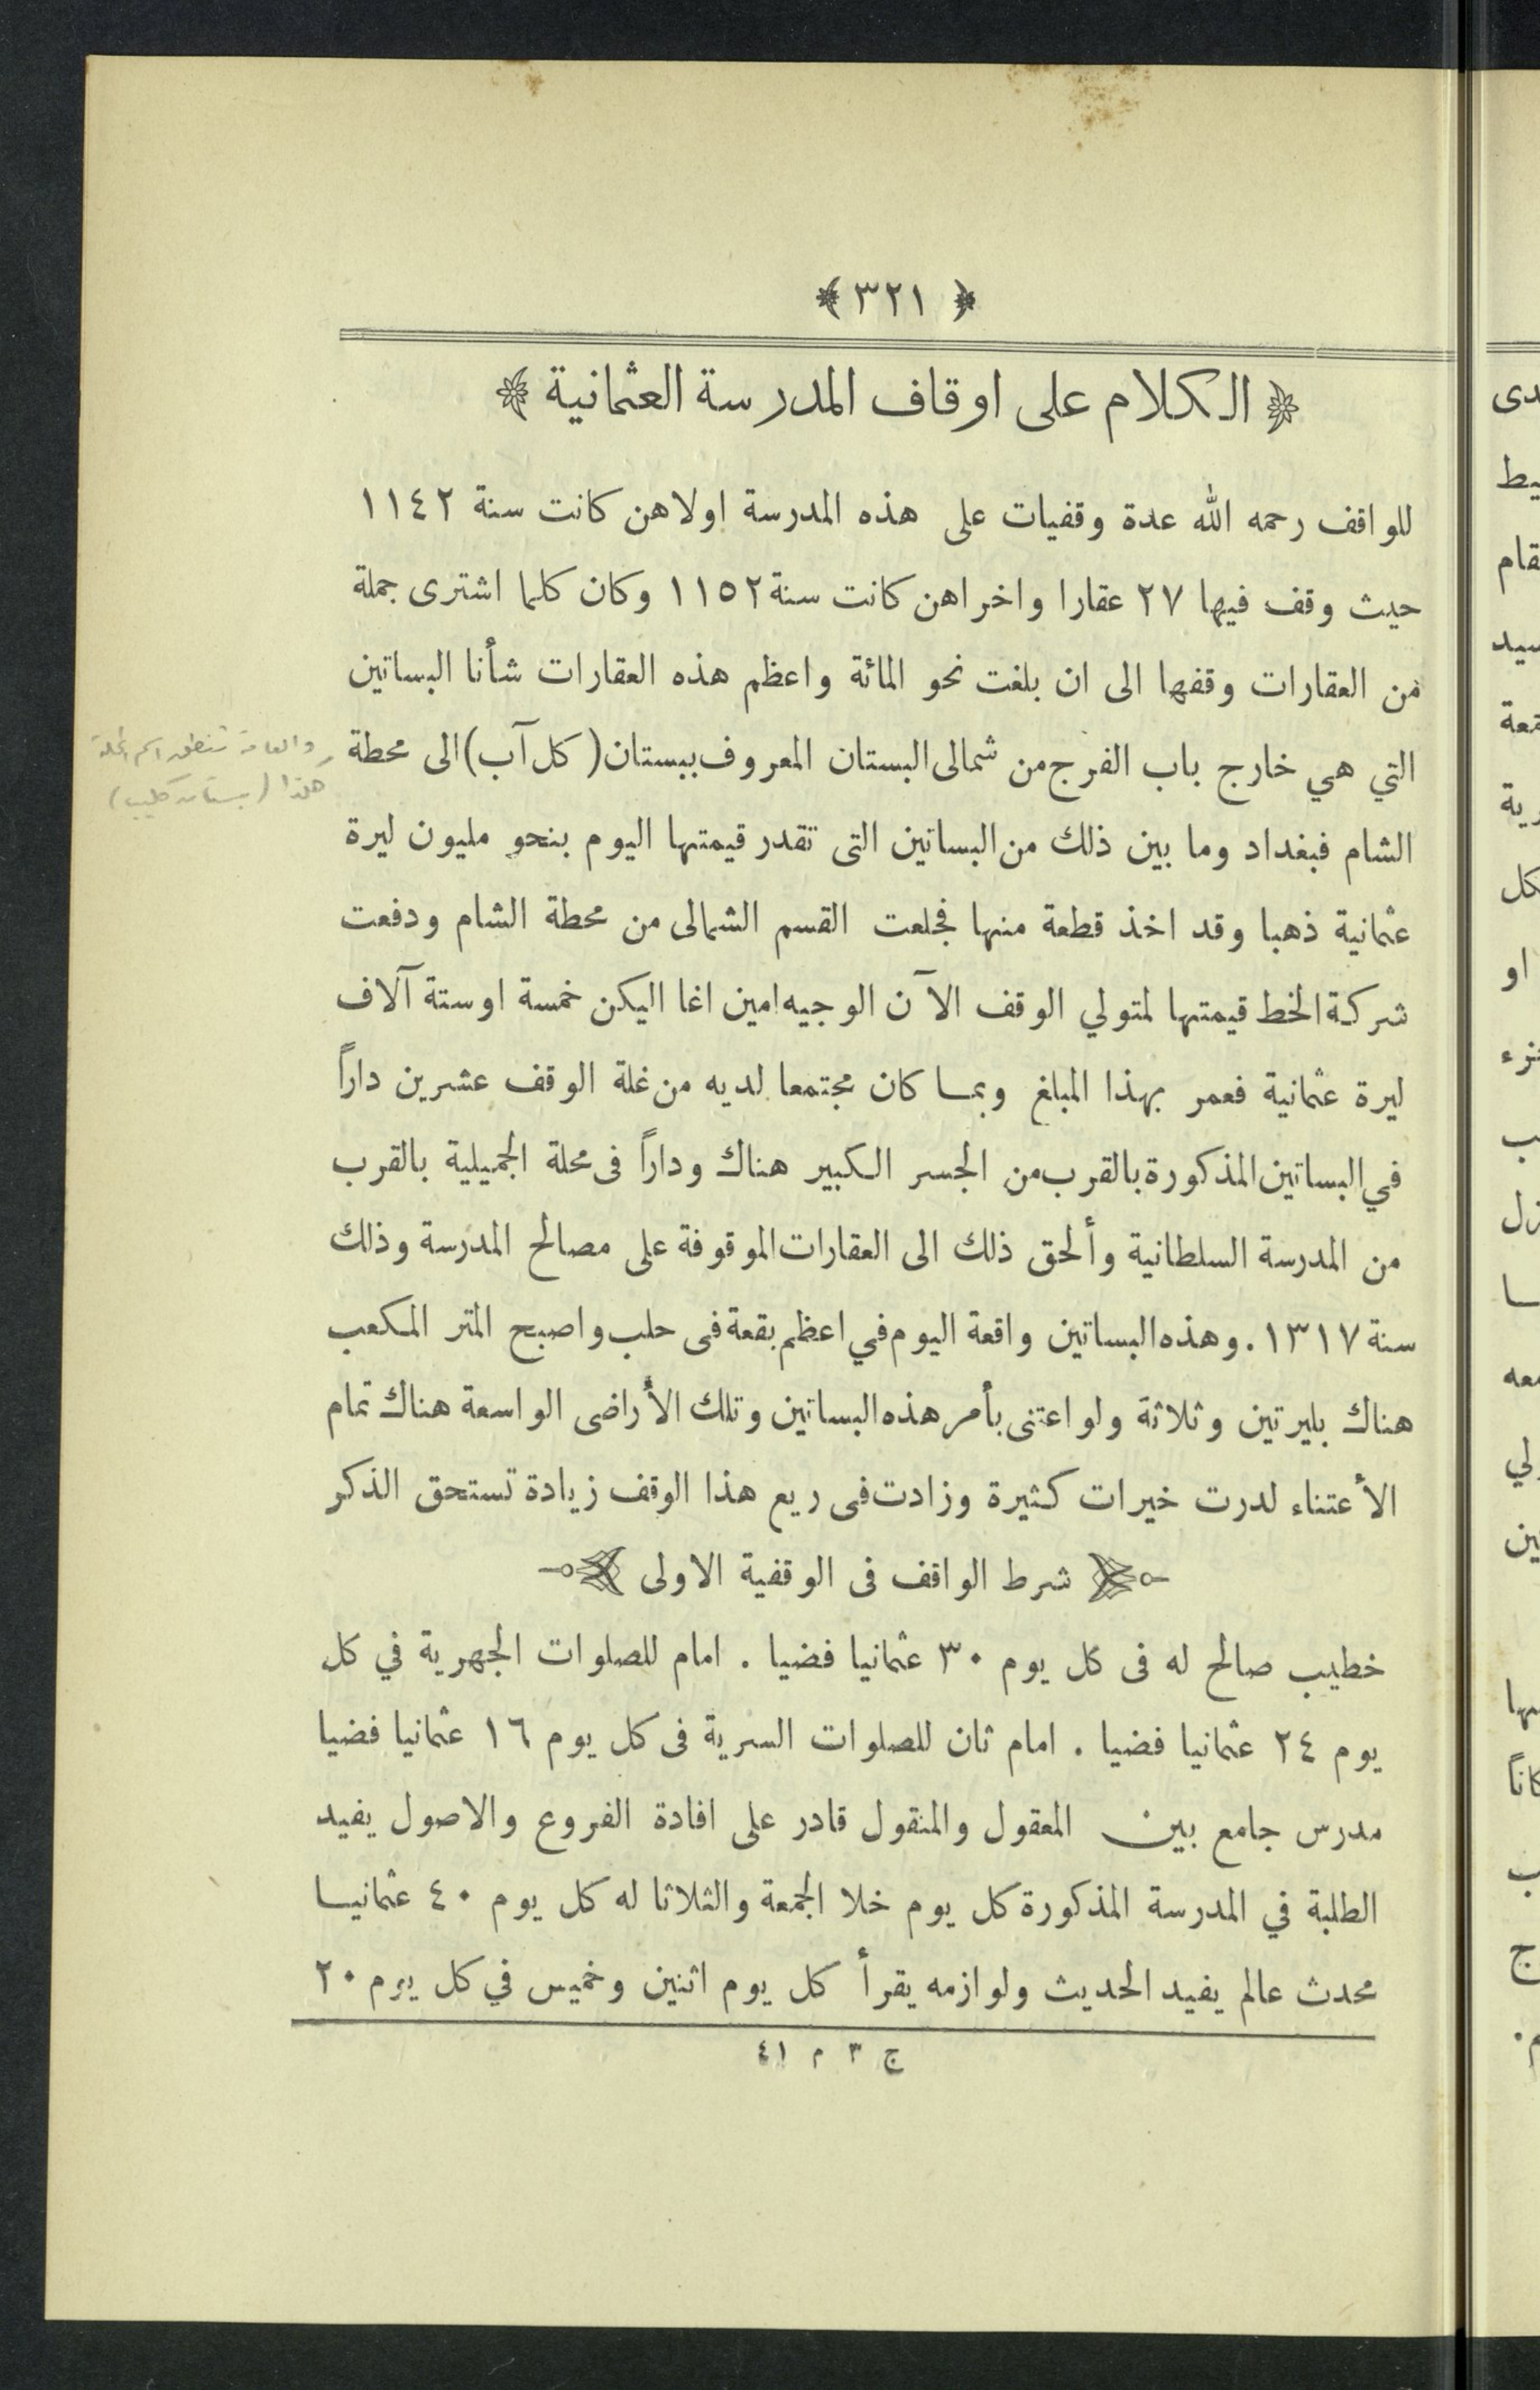 ﴿ ٣٢١ ﴾
﴿ الكلام على اوقاف المدرسة العثمانية ﴾
للواقف رحمه الله عدة وقفيات على هذه المدرسة اولاهن كانت سنة ١١٤٢
حيث وقف فيها ٢٧ عقارا واخراهن كانت سنة ١١٥٢ وكان كلما اشترى جملة
من العقارات وقفها الى ان بلغت نحو المائة واعظم هذه العقارات شأنا البساتين
التي هي خارج باب الفرج من شمالى البستان المعروف ببستان ( كل آب ) الى محطة
والعامة تنطق اسم المحلة
هكذا ( بستان كليب )
الشام فبغداد وما بين ذلك من البساتين التى تقدر قيمتها اليوم بنحو مليون ليرة
عثمانية ذهبا وقد اخذ قطعة منها فجلعت القسم الشمالى من محطة الشام ودفعت
شركة الخط قيمتها لمتولي الوقف الآن الوجيه امين اغا اليكن خمسة اوستة آلاف
ليرة عثمانية فعمر بهذا المبلغ وبما كان مجتمعا لديه من غلة الوقف عشرين داراً
في البساتين المذكورة بالقرب من الجسر الكبير هناك وداراً فى محلة الجميلية بالقرب
من المدرسة السلطانية وألحق ذلك الى العقارات الموقوفة على مصالح المدرسة وذلك
سنة ١٣١٧ . وهذه البساتين واقعة اليوم في اعظم بقعة فى حلب واصبح المتر المكعب
هناك بليرتين وثلاثة ولو اعتنى بأمر هذه البساتين وتلك الأراضى الواسعة هناك تمام
الأعتناء لدرت خيرات كثيرة وزادت فى ريع هذا الوقف زيادة تستحق الذكر
شرط الواقف فى الوقفية الاولى
خطيب صالح له فى كل يوم ٣٠ عثمانيا فضيا . امام للصلوات الجهرية في كل
يوم ٢٤ عثمانيا فضيا . امام ثان للصلوات السرية فى كل يوم ١٦ عثمانيا فضيا
مدرس جامع بين المعقول والمنقول قادر على افادة الفروع والاصول يفيد
الطلبة في المدرسة المذكورة كل يوم خلا الجمعة والثلاثا له كل يوم ٤٠ عثمانيا
محدث عالم يفيد الحديث ولوازمه يقرأ كل يوم اثنين وخميس في كل يوم ٢٠
ج ٣ م ٤١